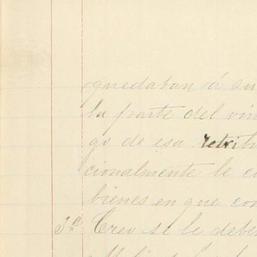 quedaban á su
la parte del vin
go de esa retrib
cionalmente le co
bienes en que con
3º Creo se le debe